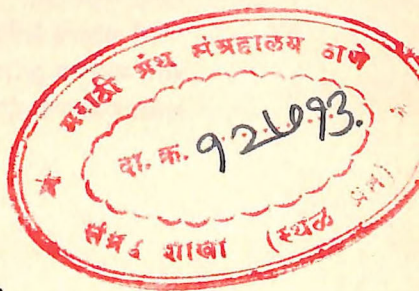 मराठी ग्रंथ संग्रहालय ठाणे
दा. क्र. १२७१३.
संग्रह शाखा (स्थळ प्रत)